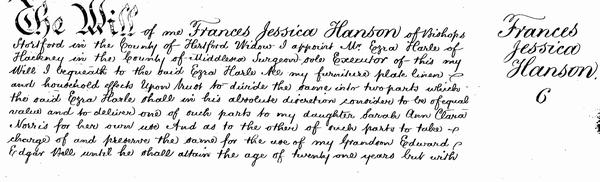 The Will of me Frances Jessica Hanson of Bishops
Stortford in the County of Hertford Widow I appoint Mr. Ezra Harle of
Hackney in the County of Middlesex Surgeon sole Executor of this my
Will I bequeath to the said Ezra Harle All my furniture plate linen
and household effects Upon trust to divide the same into two parts which
the said Ezra Harle shall in his absolute discretion consider to be of equal
value and to deliver one of such parts to my daughter Sarah Ann Clara
Norris for her own use And as to the other of such parts to take
charge of and preserve the same for the use of my Grandson Edward
Edgar Vell until he shall attain the age of twenty one years but with
Frances
Jessica
Hanson.
6